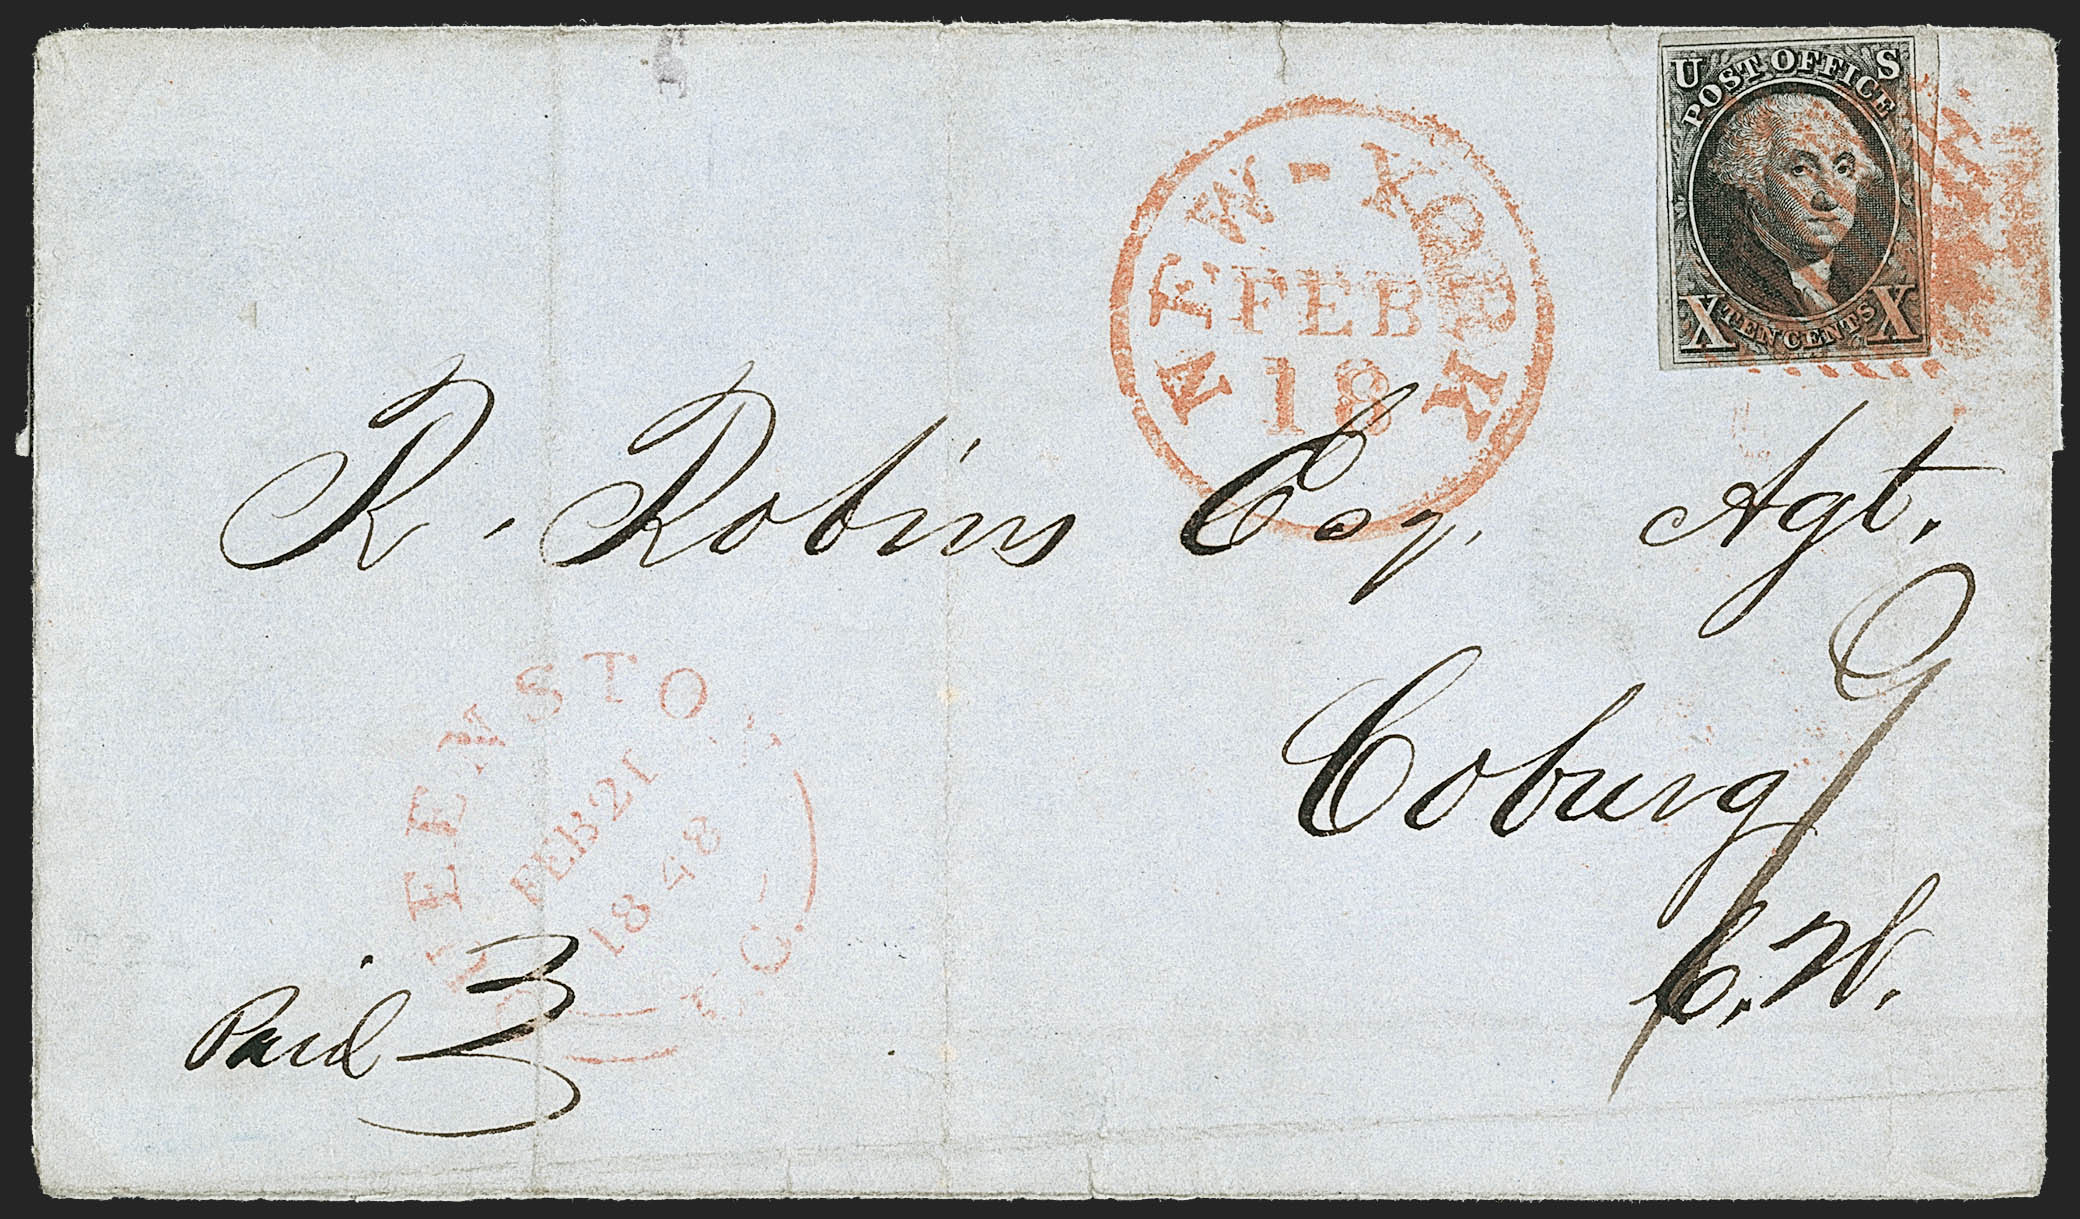 U S
POST OFFICE
X TEN CENTS X
NEW-YORK
FEB
18
R. Robins Esq. Agt.
Coburg
C.W.
9
FEB 21
1848
U.C.
Paid 3